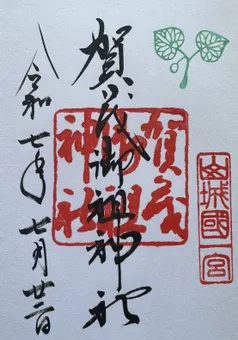 山城國一宮
賀茂御祖神社
賀茂
御祖
神社
令和七年七月廿三日